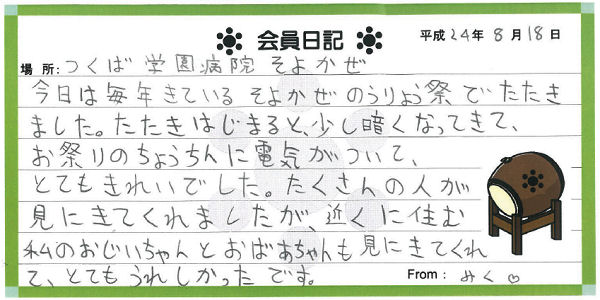 会員日記
平成24年8月18日
場所：つくば学園病院 そよかぜ
今日は毎年きている そよかぜ のうりょう祭 で たたき
ました。たたきはじまると、少し暗くなってきて、
お祭りのちょうちんに電気がついて、
とてもきれいでした。たくさんの人が
見にきてくれましたが、近くに住む
私のおじいちゃんとおばあちゃんも見にきてくれ
て、とてもうれしかったです。
From：みく♡